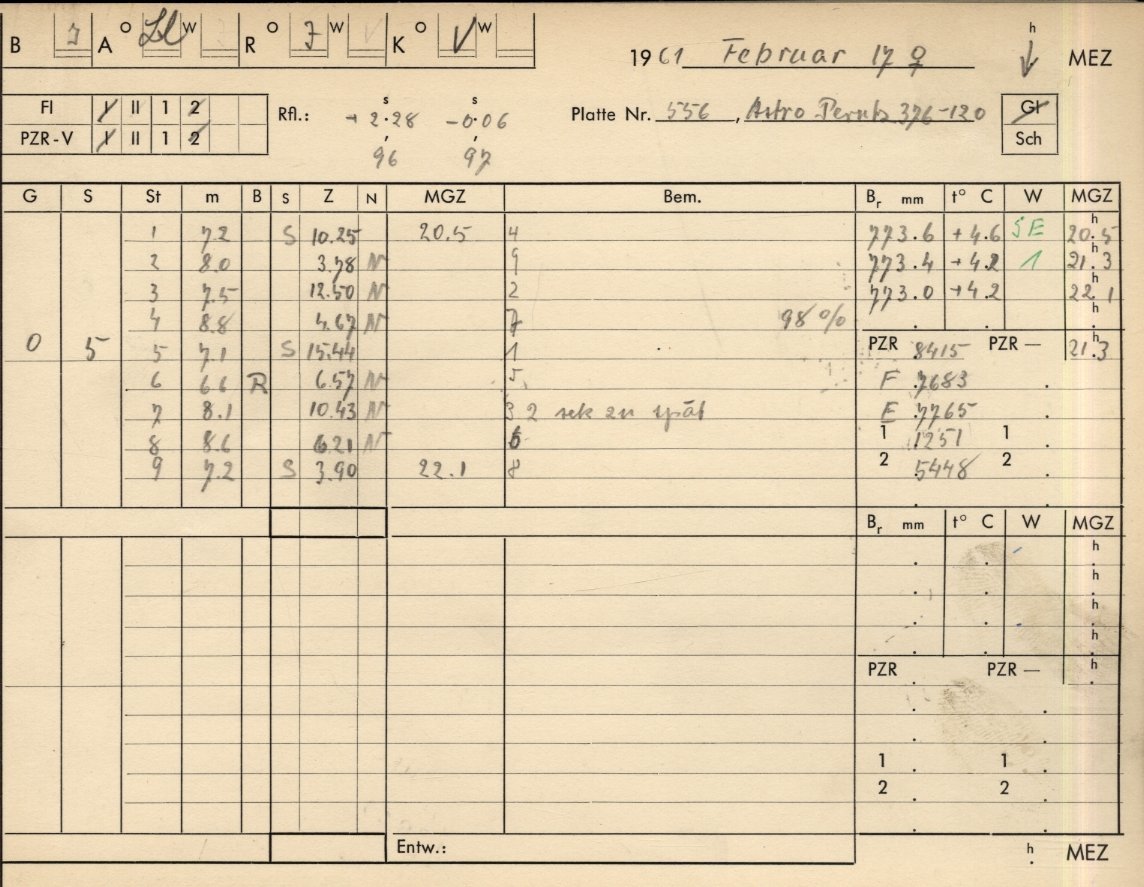 B J A O Ll W R O J W V K O V W
h
19 61 Februar 17 ♀ MEZ
FI I II 1 2
PZR-V I II 1 2
Rfl.: s s
+ 2.28 -0.06
96 97
Platte Nr. 556, Astro Perutz 376-120
Gl
Sch
G S St m B S Z N MGZ Bem. Br mm t° C W MGZ
1 7.2 S 10.25 20.5 4 773.6 +4.6 SE 20.5 h
2 8.0 3.78 N 9 773.4 +4.2 1 21.3 h
3 7.5 12.50 N 2 773.0 +4.2 22.1 h
4 8.8 4.67 N 7 98 % h
0 5 5 7.1 S 15.44 1 PZR 8415 PZR — 21.3 h
6 6.6 R 6.57 N 5 F .7683
7 8.1 10.43 N 3 2 sek zu spät E .7765
8 8.6 6.21 N 6 1 1251 1
9 7.2 S 3.90 22.1 8 2 5448 2
Br mm t° C W MGZ
h
h
h
h
PZR PZR — h
1 1
2 2
Entw.: h MEZ